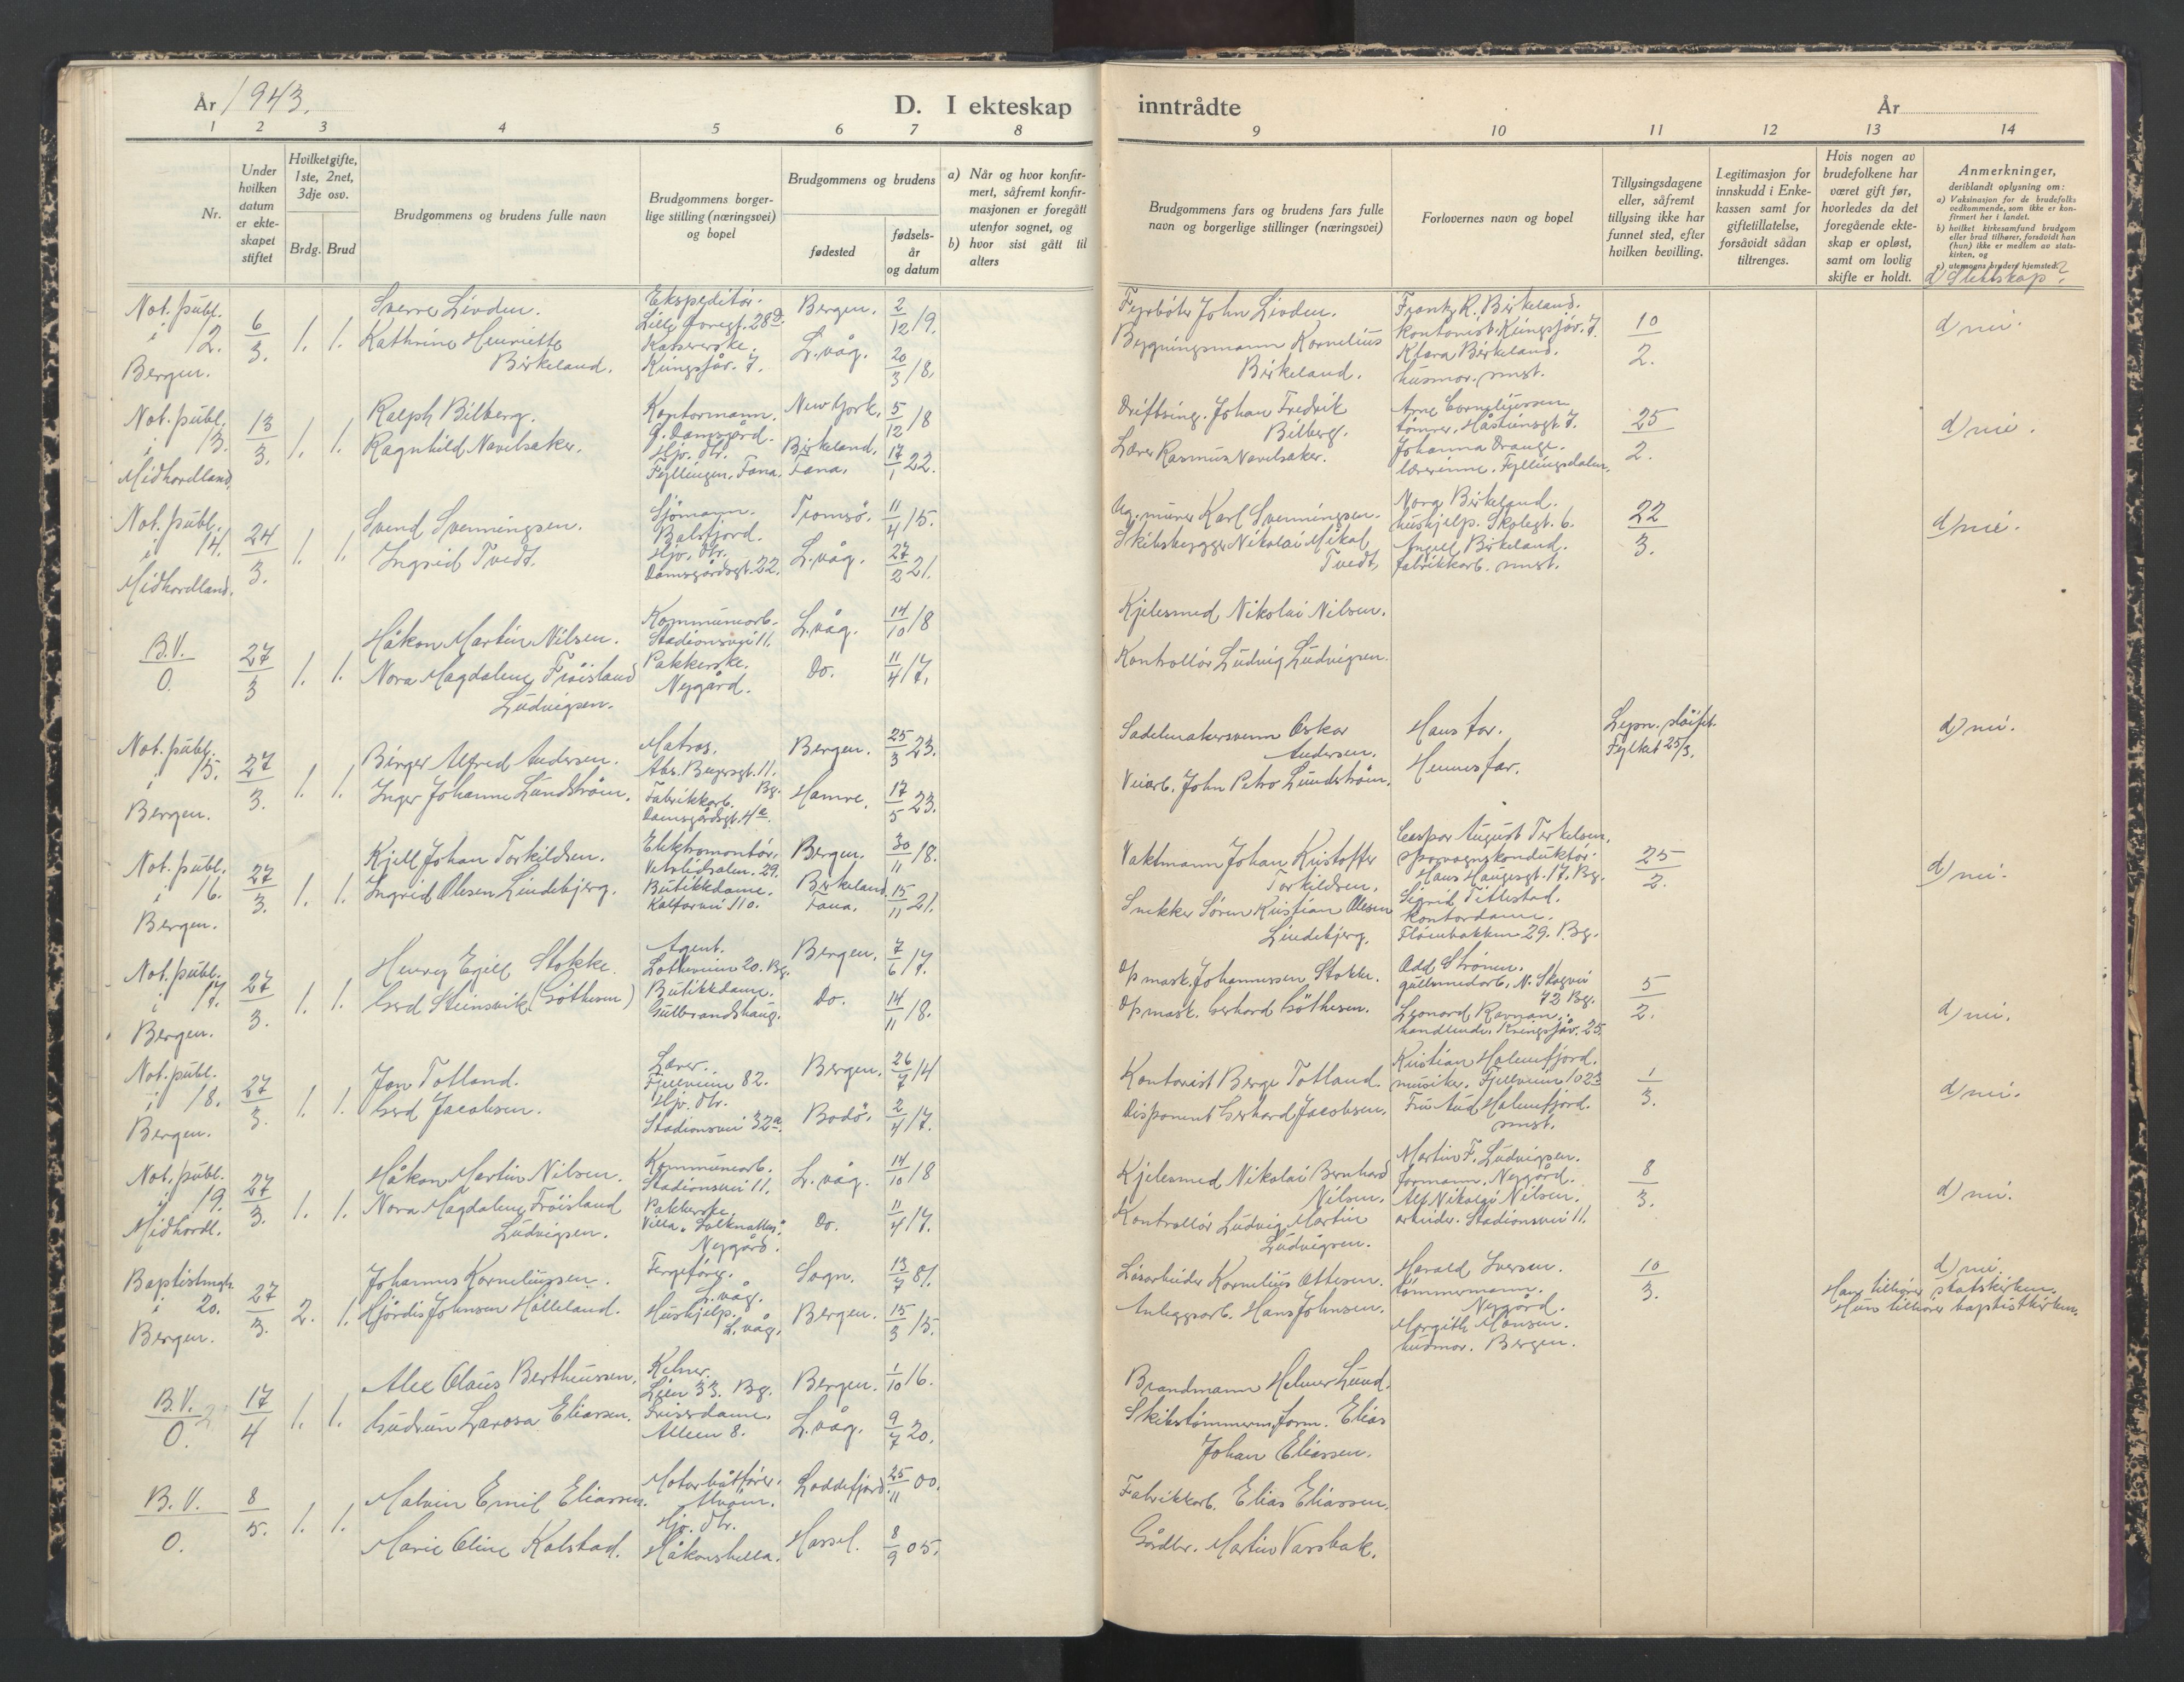 År 1943.
D. I ekteskap
inntrådte
År
1 2 3 4 5 6 7 8
9 10 11 12 13 14
Nr.
Under hvilken datum er ekteskapet stiftet
Hvilket gifte, 1ste, 2net, 3dje osv.
Brdg. Brud
Brudgommens og brudens fulle navn
Brudgommens borgerlige stilling (næringsvei) og bopel
Brudgommens og brudens
fødested
fødselsår og datum
a) Når og hvor konfirmert, såfremt konfirmasjonen er foregått utenfor sognet, og
b) hvor sist gått til alters
Brudgommens fars og brudens fars fulle navn og borgerlige stillinger (næringsvei)
Forlovernes navn og bopel
Tillysingsdagene eller, såfremt tillysing ikke har funnet sted, efter hvilken bevilling.
Legitimasjon for innskudd i Enkekassen samt for giftetillatelse, forsåvidt sådan tiltrenges.
Hvis nogen av brudefolkene har været gift før, hvorledes da det foregående ekteskap er opløst, samt om lovlig skifte er holdt.
Anmerkninger,
deriblandt oplysning om:
a) Vaksinasjon for de brudefolks vedkommende, som ikke er konfirmert her i landet.
b) hvilket kirkesamfund brudgom eller brud tilhører, forsåvidt han (hun) ikke er medlem av statskirken, og
c) utensogns bruders hjemsted.
d) Slektskap?
Not. publ. i 12. Bergen.
6/3. 1. 1.
Sverre Livden.
Kathrine Henriette Birkeland.
Ekspeditør.
Lille 28
Kassererske.
Kringsjåv. 7.
Bergen. 2/12 19.
L.våg. 20/3 18.
Fyrbøter John Livden.
Bygningsmann Kornelius Birkeland.
Frantz R. Birkeland.
kontorist. Kringsjåv. 7.
Klara Birkeland.
husmor. smst.
10/2.
d) nei.
Not. publ. i 13. Midhordland.
13/3. 1. 1.
Ralph Bilberg.
Ragnhild Navelsaker.
Kontormann.
G. Damsgård.
Hjv. dtr.
Fyllingen, Fana.
New York. 5/12 18
Birkeland, Fana. 17/1 22.
Driftsing. Johan Fredrik Bilberg.
Lærer Rasmus Navelsaker.
Arne Corneliussen
tømrer.
Johanna Drange.
lærerinne. Fyllingsdalen.
25/2.
d) nei.
Not. publ. i 14. Midhordland.
24/3. 1. 1.
Svend Svenningsen.
Ingrid Tvedt.
Sjømann.
Balsfjord.
Hjv. dtr.
Damsgårdsgt. 22.
Tromsø. 11/4 15.
L.våg. 27/2 21.
Ug. murer Karl Svenningsen.
Skibsbygger Nikolai Mikal Tvedt,
Nora Birkeland.
hushjelp. Skolegt. 6.
Birkeland.
fabrikkarb. smst.
22/3.
d) nei.
B.V./O.
27/3 1. 1.
Håkon Martin Nilsen.
Nora Magdalene Frøisland Ludvigsen.
Kommunearb.
Stadionsvei 11.
Pakkerske.
Nygård.
L.våg. 14/10 18
Do. 11/4 17.
Kjelesmed Nikolai Nilsen.
Kontrollør Ludvig Ludvigsen.
Not. publ. i 15. Bergen.
27/3. 1. 1.
Birger Alfred Andersen.
Inger Johanne Lundstrøm.
Matros.
11. Bg.
Fabrikkarb.
Damsgårdsgt. 4a.
Bergen. 25/3 23.
Hamre. 17/5 23.
Sadelmakersvenn Oskar Andersen.
Veiarb. John Petro Lundstrøm.
Hans far.
Hennes far.
Lepn. sløifet.
25/3.
d) nei.
Not. publ. i 16. Bergen.
27/3. 1. 1.
Kjell Johan Torkildsen.
Ingrid Olesen Lindebjerg.
Elektromontør.
Vetrlidsalm. 29.
Butikkdame.
Kalfarvei 110.
Bergen. 30/11 18.
Birkeland, Fana. 15/11 21.
Vaktmann Johan Kristoffer Torkildsen.
Snekker Søren Kristian Olesen Lindebjerg.
Caspar August Terkelsen.
sporvognskonduktør.
Hans Haugesgt. 17. Bg.
Sigrid Titlestad.
kontordame.
Fløienbakken 29. Bg.
25/2.
d) nei.
Not. publ. i 17. Bergen.
27/3. 1. 1.
Henry Egill Stokke.
Gerd Steinsvik (Gøthesen)
Agent.
Lotheveien 20. Bg.
Butikkdame.
Gulbrandshaug.
Bergen. 7/6 17.
Do. 14/11 18.
Op.mask. Johannessen Stokke.
Op.mask. Gerhard Gøthesen.
Odd Strønen.
gullsmedarb. N. Skogvei 73 Bg.
Leonard Ravnan.
handlende. Kringsjåv. 25.
5/2.
d) nei.
Not. publ. i 18. Bergen.
27/3. 1. 1.
Jon Totland.
Gerd Jacobsen.
Lærer.
Fjellveien 82.
Hjv. dtr.
Stadionsvei 32a.
Bergen. 26/7 14
Bodø. 2/4 17.
Kontorist Berge Totland.
Disponent Gerhard Jacobsen.
Kristian Holmefjord.
musiker. Fjellveien 102
Fru Aud Holmefjord. smst.
1/3.
d) nei.
Not. publ. i 19. Midhordl.
27/3. 1. 1.
Håkon Martin Nilsen.
Nora Magdalene Frøisland Ludvigsen.
Kommunearb.
Stadionsvei 11.
Pakkerske.
Villa "Solknatten".
Nygård.
L.våg. 14/10 18
Do. 11/4 17.
Kjelesmed Nikolai Bernhard Nilsen.
Kontrollør Ludvig Martin Ludvigsen.
Martin F. Ludvigsen.
formann, Nygård.
Alf Nikolai Nilsen.
arbeider. Stadionsvei 11.
8/3.
d) nei.
Baptistmgh. i 20. Bergen.
27/3. 2. 1.
Johannes Korneliussen.
Hjørdis Johnsen Hølleland.
Fergefører.
L.våg.
Hushjelp.
L.våg.
Sogn. 13/7 81.
Bergen. 15/3 15.
Løsarbeider Kornelius Ottesen.
Anleggsarb. Hans Johnsen.
Harald Iversen.
tømmermann.
Nygård.
Margith Monsen.
husmor. Bergen.
10/3.
d) nei.
Han tilhører statskirken.
Hun tilhører baptistkirken.
B.V./O.
17/4 1. 1.
Alex Olaus Bertheussen.
Gudrun Larosa Eliassen.
Kelner.
Lien 33. Bg.
Friserdame.
Alleen 8.
Bergen. 1/10 16.
L.våg. 9/7 20.
Brandmann Helmer Lund.
Skibstømmerm.form. Elias Johan Eliassen.
B.V./O.
8/5. 1. 1.
Malvin Emil Eliassen.
Marie Oline Kalstad.
Motorbåtfører.
Alvøen.
Hjv. dtr.
Håkonshella.
Loddefjord. 25/11 00.
Hassel. 8/9 05.
Fabrikkarb. Elias Eliassen.
Gårdbr. Martin Varsbak.